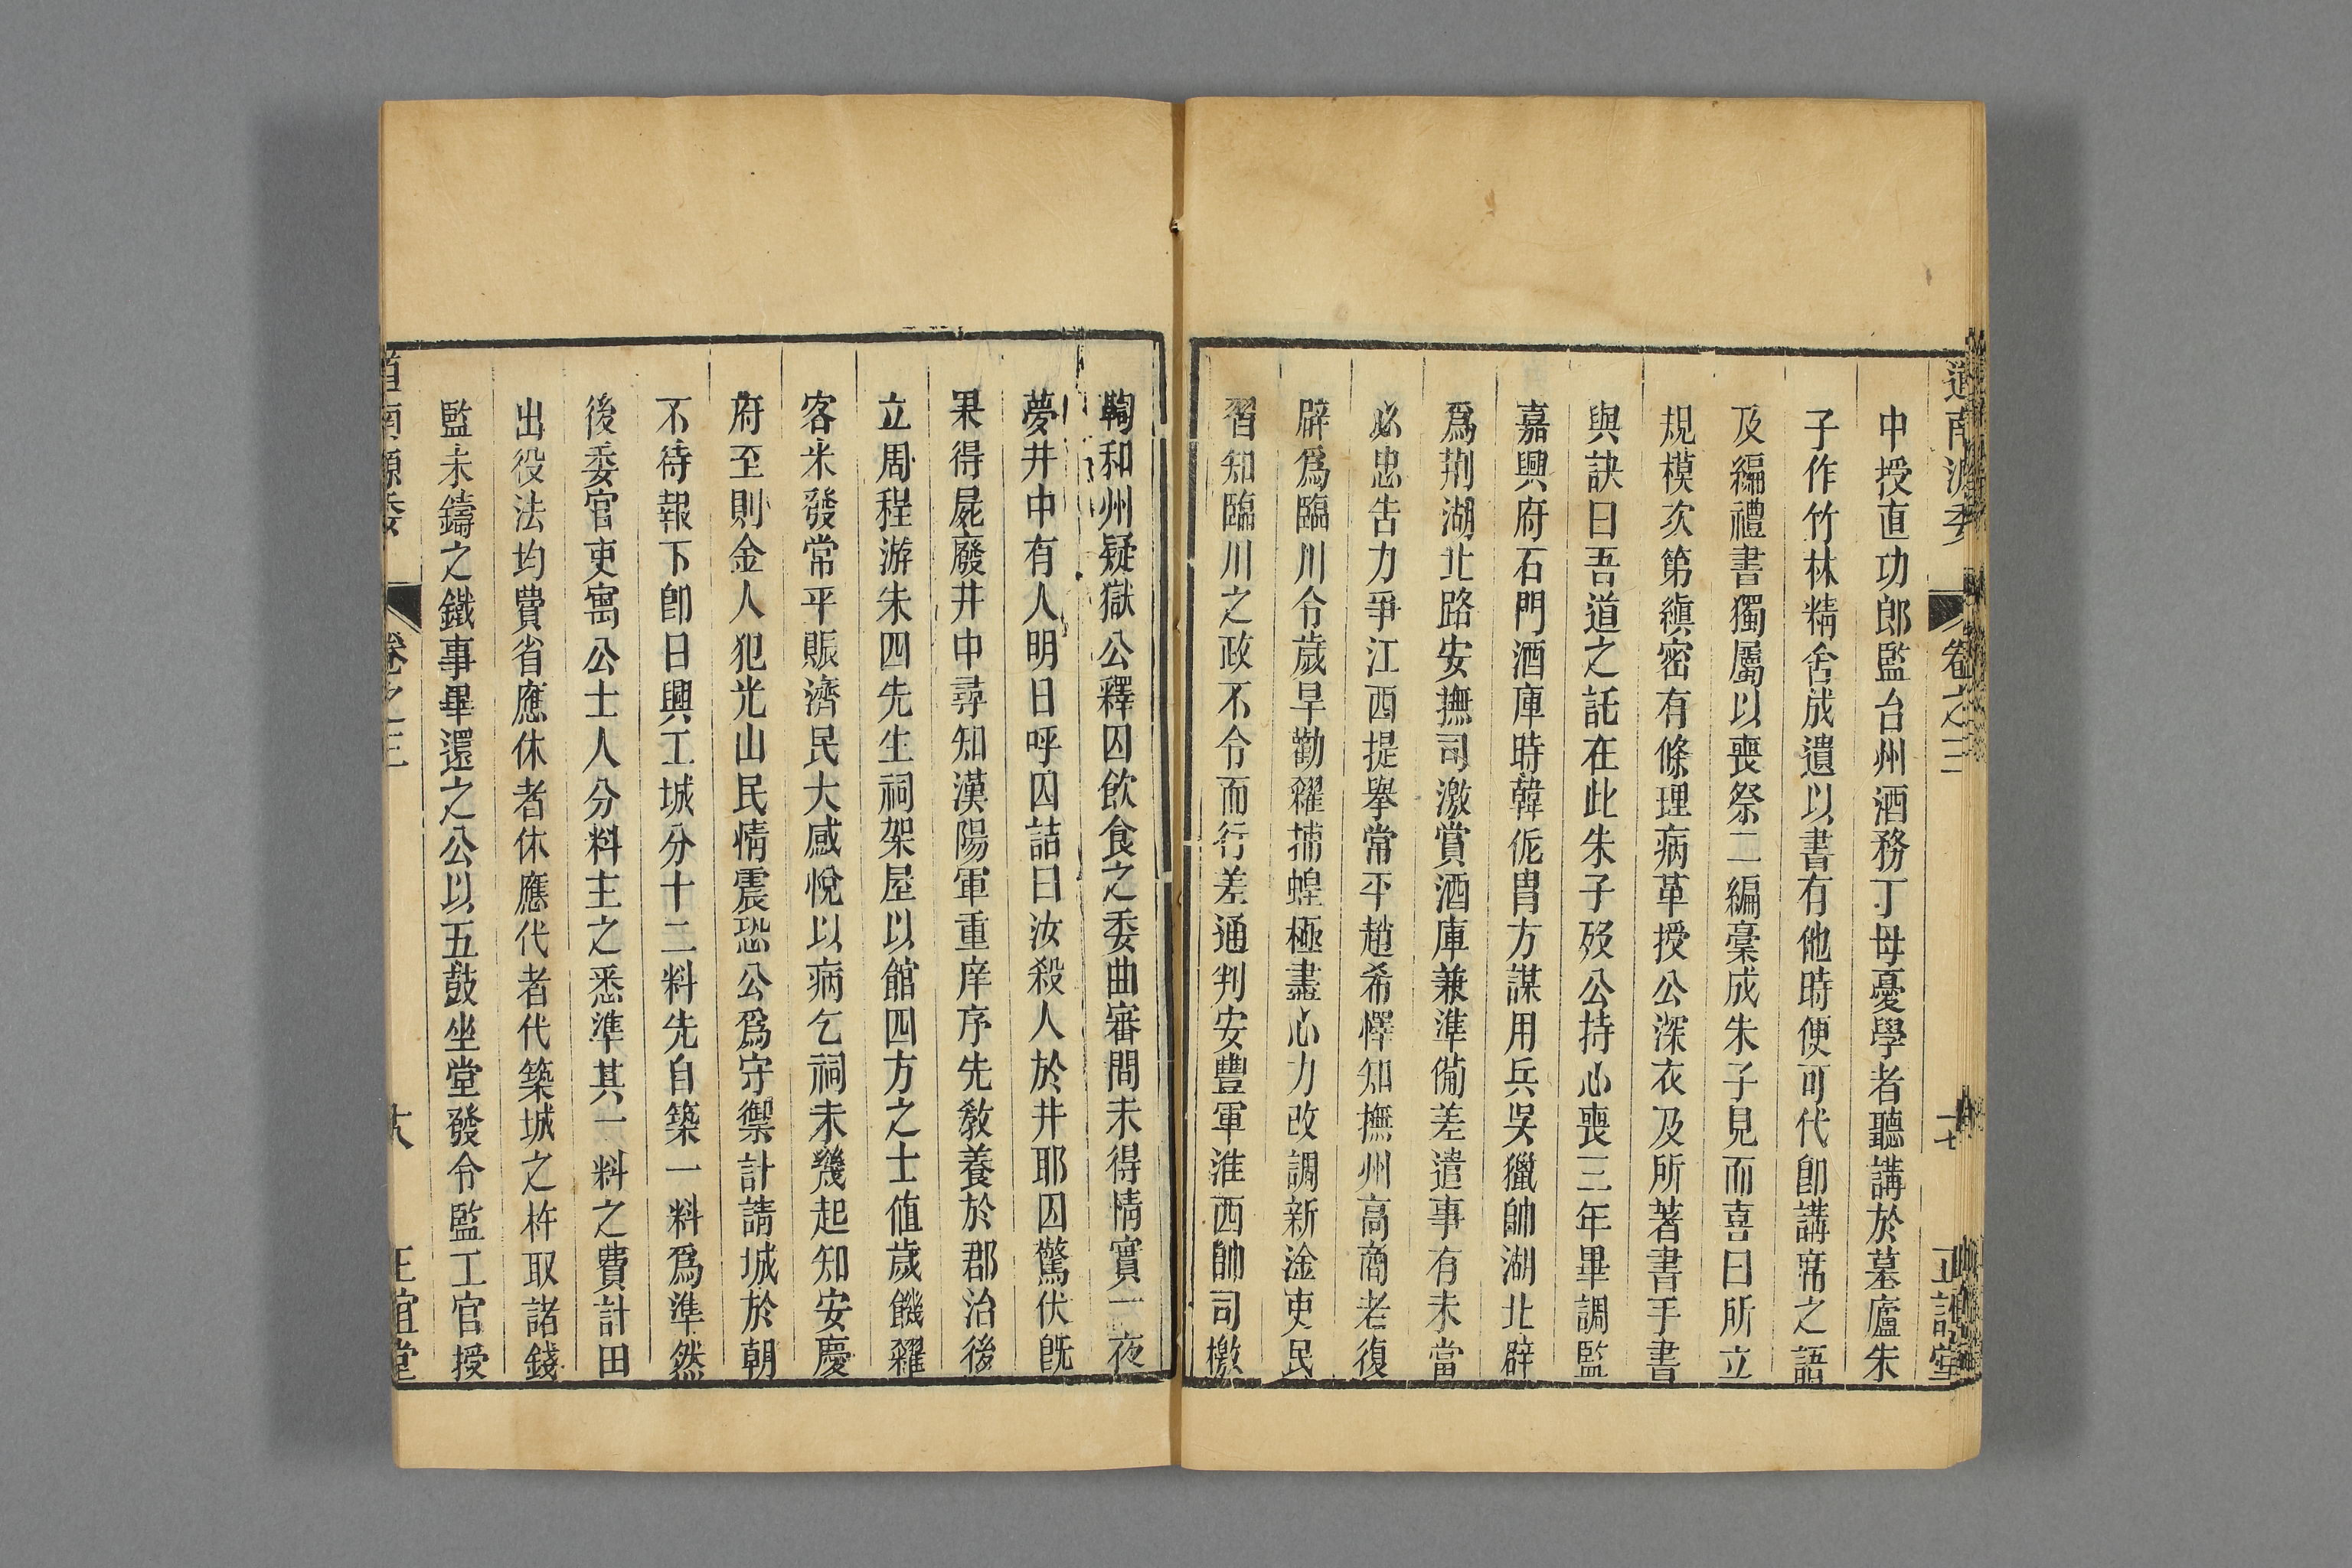 中授迪功郎監台州酒務丁母憂學者聽講於墓廬朱
子作竹林精舍成遺以書有他時便可代卽講席之語
及編禮書獨屬以喪祭二編稾成朱子見而喜曰所立
規模次第縝密有條理病革授公深衣及所著書手書
與訣曰吾道之託在此朱子歿公持心喪三年畢調監
嘉興府石門酒庫時韓侂胄方謀用兵吳獵帥湖北辟
爲荆湖北路安撫司激賞酒庫兼準備差遣事有未當
必忠告力爭江西提舉常平趙希懌知撫州高商老復
辟爲臨川令歲旱勸糴捕蝗極盡心力改調新淦吏民
習知臨川之政不令而行差通判安豐軍淮西帥司檄
道南源委
卷之三
十七
正誼堂
鞫和州疑獄公釋囚飲食之委曲審問未得情實一夜
夢井中有人明日呼囚詰曰汝殺人於井耶囚驚伏旣
果得屍廢井中尋知漢陽軍重庠序先敎養於郡治後
立周程游朱四先生祠架屋以館四方之士値歲饑糴
客米發常平賑濟民大感悅以病乞祠未幾起知安慶
府至則金人犯光山民情震恐公爲守禦計請城於朝
不待報下卽日興工城分十二料先自築一料爲準然
後委官吏寓公士人分料主之悉準其一料之費計田
出役法均費省應休者休應代者代築城之杵取諸錢
監未鑄之鐵事畢還之公以五鼓坐堂發令監工官授
道南源委
卷之三
十八
正誼堂